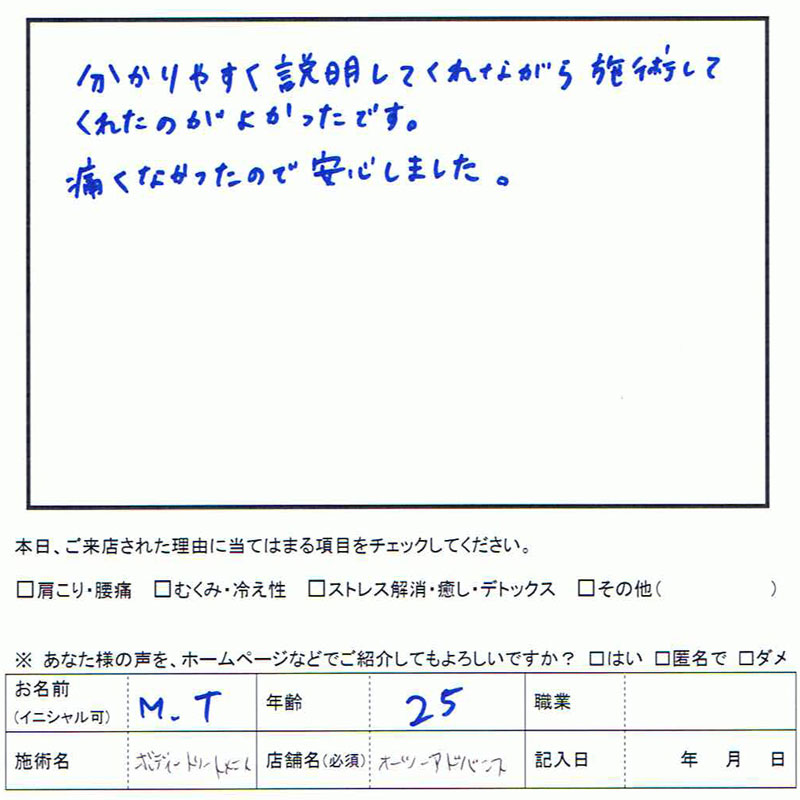 分かりやすく説明してくれながら施術して
くれたのがよかったです。
痛くなかったので安心しました。
本日、ご来店された理由に当てはまる項目をチェックしてください。
□肩こり・腰痛 □むくみ・冷え性 □ストレス解消・癒し・デトックス □その他( )
※ あなた様の声を、ホームページなどでご紹介してもよろしいですか? □はい □匿名で □ダメ
お名前 (イニシャル可) M.T 年齢 25 職業
施術名 ボディートリートメント 店舗名(必須) オーツーアドバンス 記入日 年 月 日